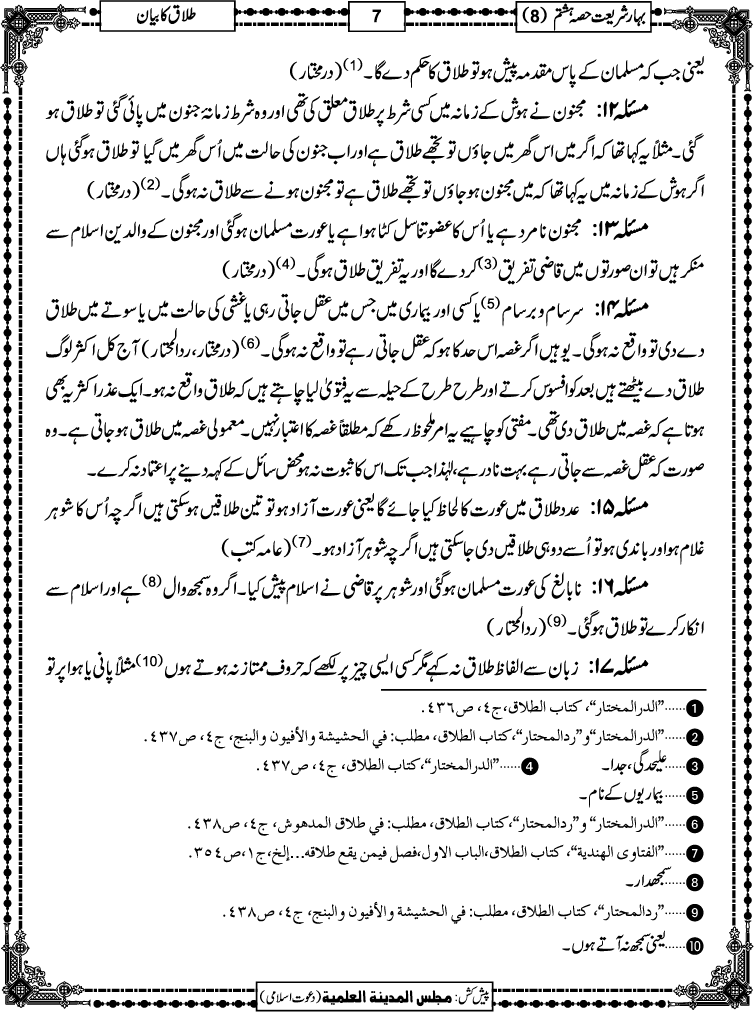 بہارِشریعت حصہ ہشتم (8)
7
طلاق کا بیان
یعنی جب کہ مسلمان کے پاس مقدمہ پیش ہو تو طلاق کا حکم دے گا۔(1) (درمختار)
مسئلہ ۱۲: مجنون نے ہوش کے زمانہ میں کسی شرط پر طلاق معلق کی تھی اور وہ شرط زمانۂ جنون میں پائی گئی تو طلاق ہو
گئی۔ مثلاً یہ کہا تھا کہ اگر میں اس گھر میں جاؤں تو تجھے طلاق ہے اور اب جنون کی حالت میں اُس گھر میں گیا تو طلاق ہوگئی ہاں
اگر ہوش کے زمانہ میں یہ کہا تھا کہ میں مجنون ہوجاؤں تو تجھے طلاق ہے تو مجنون ہونے سے طلاق نہ ہوگی۔(2) (درمختار)
مسئلہ ۱۳: مجنون نامرد ہے یا اُس کا عضو تناسل کٹا ہوا ہے یا عورت مسلمان ہوگئی اور مجنون کے والدین اسلام سے
منکر ہیں تو ان صورتوں میں قاضی تفریق(3) کردے گا اور یہ تفریق طلاق ہوگی۔(4) (درمختار)
مسئلہ ۱۴: سرسام و برسام(5) یا کسی اور بیماری میں جس میں عقل جاتی رہی یا غشی کی حالت میں یا سوتے میں طلاق
دے دی تو واقع نہ ہوگی۔ یوہیں اگر غصہ اس حد کا ہو کہ عقل جاتی رہے تو واقع نہ ہوگی۔(6) (درمختار، ردالمحتار) آج کل اکثر لوگ
طلاق دے بیٹھتے ہیں بعد کو افسوس کرتے اور طرح طرح کے حیلہ سے یہ فتویٰ لیا چاہتے ہیں کہ طلاق واقع نہ ہو۔ ایک عذر اکثر یہ بھی
ہوتا ہے کہ غصہ میں طلاق دی تھی۔ مفتی کو چاہیے یہ امر ملحوظ رکھے کہ مطلقاً غصہ کا اعتبار نہیں۔ معمولی غصہ میں طلاق ہوجاتی ہے۔ وہ
صورت کہ عقل غصہ سے جاتی رہے بہت نادر ہے، لہٰذا جب تک اس کا ثبوت نہ ہو محض سائل کے کہہ دینے پر اعتماد نہ کرے۔
مسئلہ ۱۵: عدد طلاق میں عورت کا لحاظ کیا جائے گا یعنی عورت آزاد ہو تو تین طلاقیں ہوسکتی ہیں اگرچہ اُس کا شوہر
غلام ہو اور باندی ہو تو اُسے دو ہی طلاقیں دی جاسکتی ہیں اگرچہ شوہر آزاد ہو۔(7) (عامہ کتب)
مسئلہ ۱۶: نابالغ کی عورت مسلمان ہوگئی اور شوہر پر قاضی نے اسلام پیش کیا۔ اگر وہ سمجھ وال(8) ہے اور اسلام سے
انکار کرے تو طلاق ہوگئی۔(9) (ردالمحتار)
مسئلہ ۱۷: زبان سے الفاظ طلاق نہ کہے مگر کسی ایسی چیز پر لکھے کہ حروف ممتاز نہ ہوتے ہوں(10) مثلاً پانی یا ہوا پر تو
1 ......”الدرالمختار“، کتاب الطلاق،ج٤، ص٤٣٦.
2 ......”الدرالمختار“و”ردالمحتار“،کتاب الطلاق، مطلب: في الحشیشة والأفیون والبنج، ج٤، ص٤٣٧.
3 ......علیحدگی، جدا۔ 4 ......”الدرالمختار“،کتاب الطلاق، ج٤، ص٤٣٧.
5 ......بیماریوں کے نام۔
6 ......”الدرالمختار“ و”ردالمحتار“،کتاب الطلاق، مطلب: في طلاق المدهوش، ج٤، ص٤٣٨.
7 ......”الفتاوی الهندیة“، کتاب الطلاق،الباب الاول،فصل فیمن یقع طلاقه...إلخ،ج١،ص٣٥٤.
8 ......سمجھدار۔
9 ......”ردالمحتار“، کتاب الطلاق، مطلب: في الحشیشة والأفیون والبنج، ج٤، ص٤٣٨.
10 ......یعنی سمجھ نہ آتے ہوں۔
پیش کش: مجلس المدینة العلمیة (دعوت اسلامی)